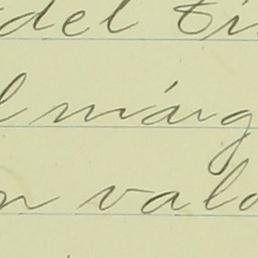 del Ti
l márg
n vald